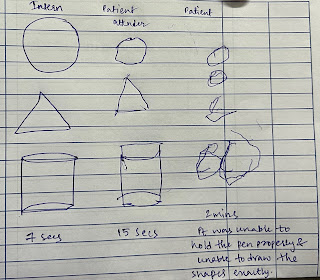 Intern Patient attender Patient
7 secs 15 secs 2 mins
Pt was unable to
hold the pen properly &
unable to draw the
shapes exactly.